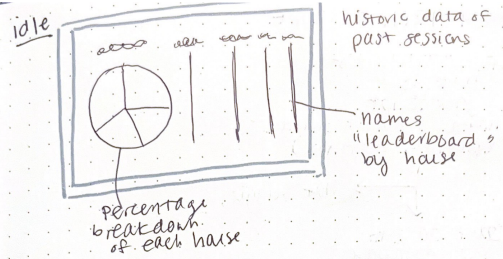 idle
historic data of
past sessions
names
"leaderboard"
by house
percentage
breakdown
of each house